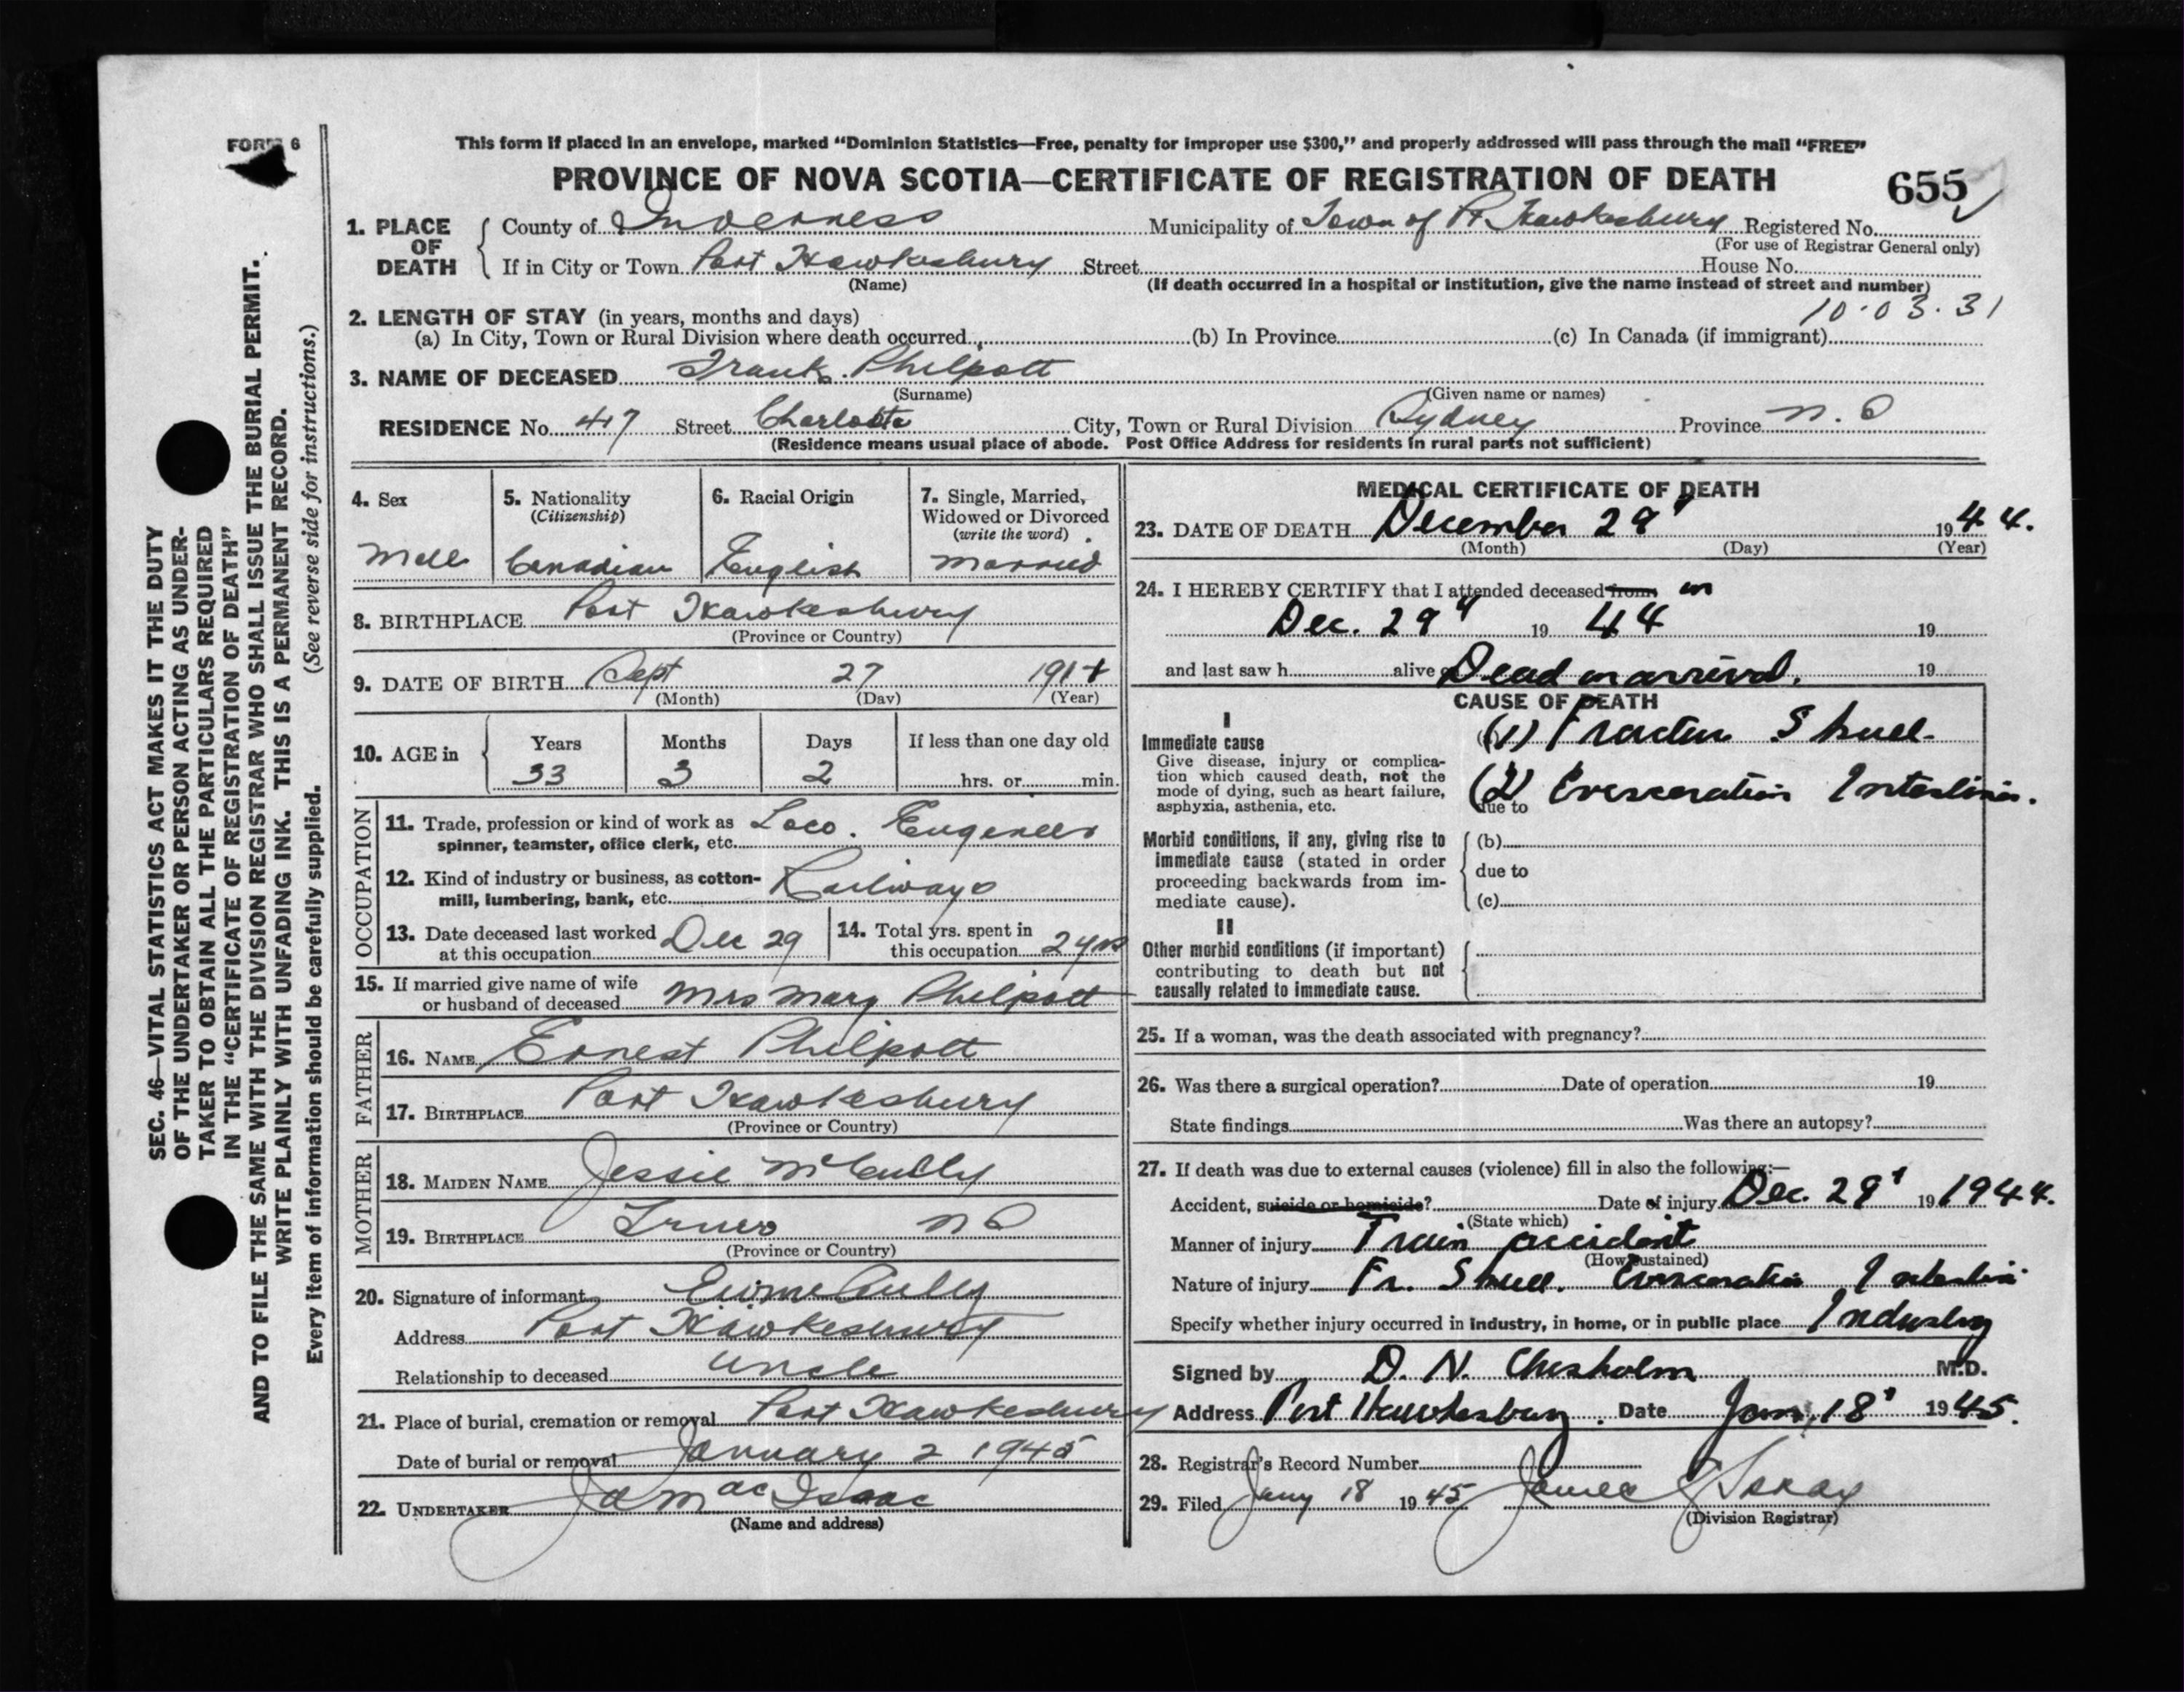 FORM 6
This form if placed in an envelope, marked "Dominion Statistics—Free, penalty for improper use $300," and properly addressed will pass through the mail "FREE"
PROVINCE OF NOVA SCOTIA—CERTIFICATE OF REGISTRATION OF DEATH
655
1. PLACE OF DEATH
County of Inverness Municipality of Town of Pt Hawkesbury Registered No.
(For use of Registrar General only)
If in City or Town Port Hawkesbury Street House No.
(Name) (If death occurred in a hospital or institution, give the name instead of street and number)
10.03.31
2. LENGTH OF STAY (in years, months and days)
(a) In City, Town or Rural Division where death occurred (b) In Province (c) In Canada (if immigrant)
3. NAME OF DECEASED Frank Philpott
(Surname) (Given name or names)
RESIDENCE No. 417 Street Charlotte City, Town or Rural Division Sydney Province N.S
(Residence means usual place of abode. Post Office Address for residents in rural parts not sufficient)
4. Sex
Male
5. Nationality
(Citizenship)
Canadian
6. Racial Origin
English
7. Single, Married,
Widowed or Divorced
(write the word)
Married
8. BIRTHPLACE Port Hawkesbury
(Province or Country)
9. DATE OF BIRTH Sept 27
(Month) (Day) (Year)
10. AGE in Years Months Days If less than one day old
33 3 2 hrs. or min.
OCCUPATION
11. Trade, profession or kind of work as Loco. Engineer
spinner, teamster, office clerk, etc.
12. Kind of industry or business, as cotton- Railways
mill, lumbering, bank, etc.
13. Date deceased last worked Dec 29
at this occupation
14. Total yrs. spent in
this occupation
15. If married give name of wife
or husband of deceased Mrs Mary Philpott
FATHER
16. NAME Ernest Philpott
17. BIRTHPLACE Port Hawkesbury
(Province or Country)
MOTHER
18. MAIDEN NAME Jessie McCully
19. BIRTHPLACE Truro NS
(Province or Country)
20. Signature of informant
Address Port Hawkesbury
Relationship to deceased Uncle
21. Place of burial, cremation or removal Port Hawkesbury
Date of burial or removal January 2 1945
22. UNDERTAKER MacIsaac
(Name and address)
MEDICAL CERTIFICATE OF DEATH
23. DATE OF DEATH December 29 1944.
(Month) (Day) (Year)
24. I HEREBY CERTIFY that I attended deceased from on
Dec. 29 19 44 19
and last saw h alive o Dead on arrival. 19
CAUSE OF DEATH
I
Immediate cause
Give disease, injury or complica-
tion which caused death, not the
mode of dying, such as heart failure,
asphyxia, asthenia, etc.
(1) Fracture Skull
(2) Evisceration Intestines.
due to
Morbid conditions, if any, giving rise to
immediate cause (stated in order
proceeding backwards from im-
mediate cause).
(b)
due to
(c)
II
Other morbid conditions (if important)
contributing to death but not
causally related to immediate cause.
25. If a woman, was the death associated with pregnancy?
26. Was there a surgical operation? Date of operation 19
State findings Was there an autopsy?
27. If death was due to external causes (violence) fill in also the following:—
Accident, suicide or homicide? Date of injury Dec. 29 19 1944.
(State which)
Manner of injury Train accident
(How sustained)
Nature of injury Fr. Skull. Evisceration Intestine
Specify whether injury occurred in industry, in home, or in public place Industry
Signed by D. N. Chisholm M.D.
Address Port Hawkesbury. Date Jan. 18 1945.
28. Registrar's Record Number
29. Filed Jany 18 1945 James
(Division Registrar)
SEC. 46—VITAL STATISTICS ACT MAKES IT THE DUTY
OF THE UNDERTAKER OR PERSON ACTING AS UNDER-
TAKER TO OBTAIN ALL THE PARTICULARS REQUIRED
IN THE "CERTIFICATE OF REGISTRATION OF DEATH"
AND TO FILE THE SAME WITH THE DIVISION REGISTRAR WHO SHALL ISSUE THE BURIAL PERMIT.
WRITE PLAINLY WITH UNFADING INK. THIS IS A PERMANENT RECORD.
Every item of information should be carefully supplied. (See reverse side for instructions.)